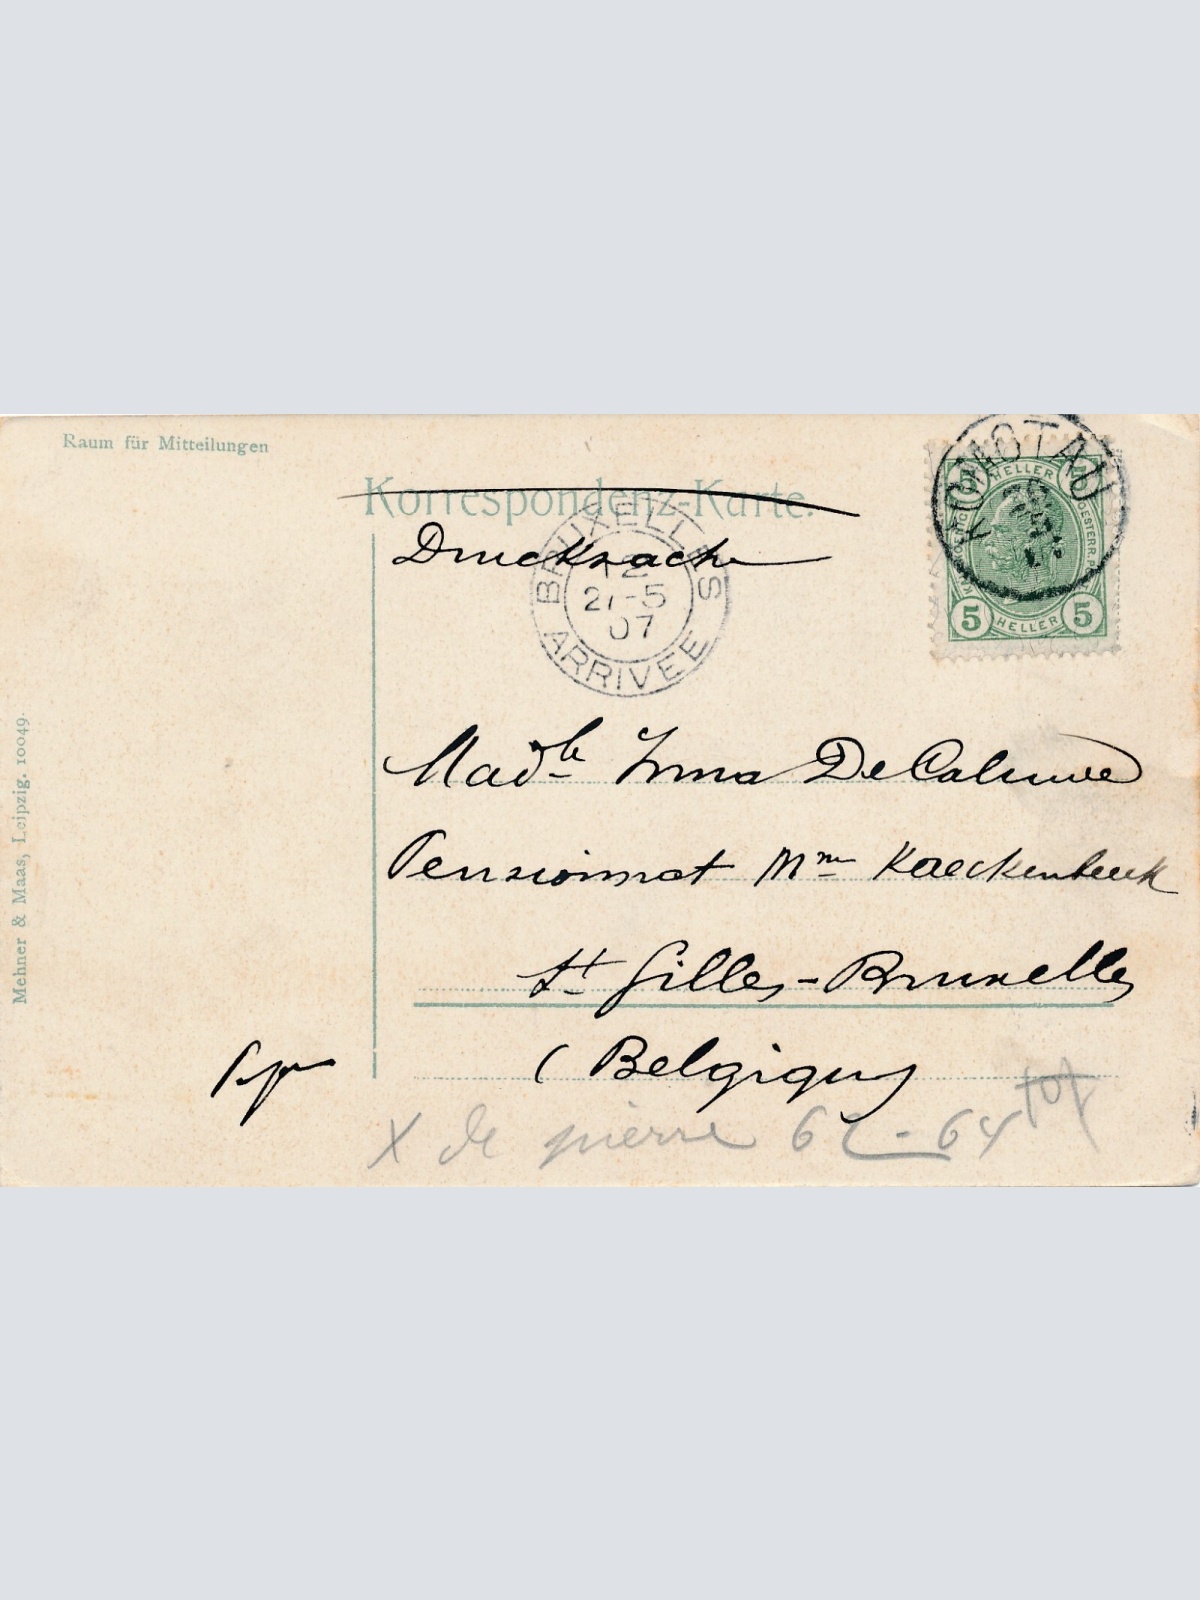 Raum für Mitteilungen
Korrespondenz-Karte.
Drucksache
BRUXELLES
12
21-5
07
ARRIVEE
KOMOTAU
HELLER
5 HELLER 5
Madlle Irma De Caluwé
Pensionnat Mme Kaeckenbeek
St Gilles-Bruxelles
(Belgique)
Papa
X de pierre 62-64
Mehner & Maas, Leipzig. 10049.